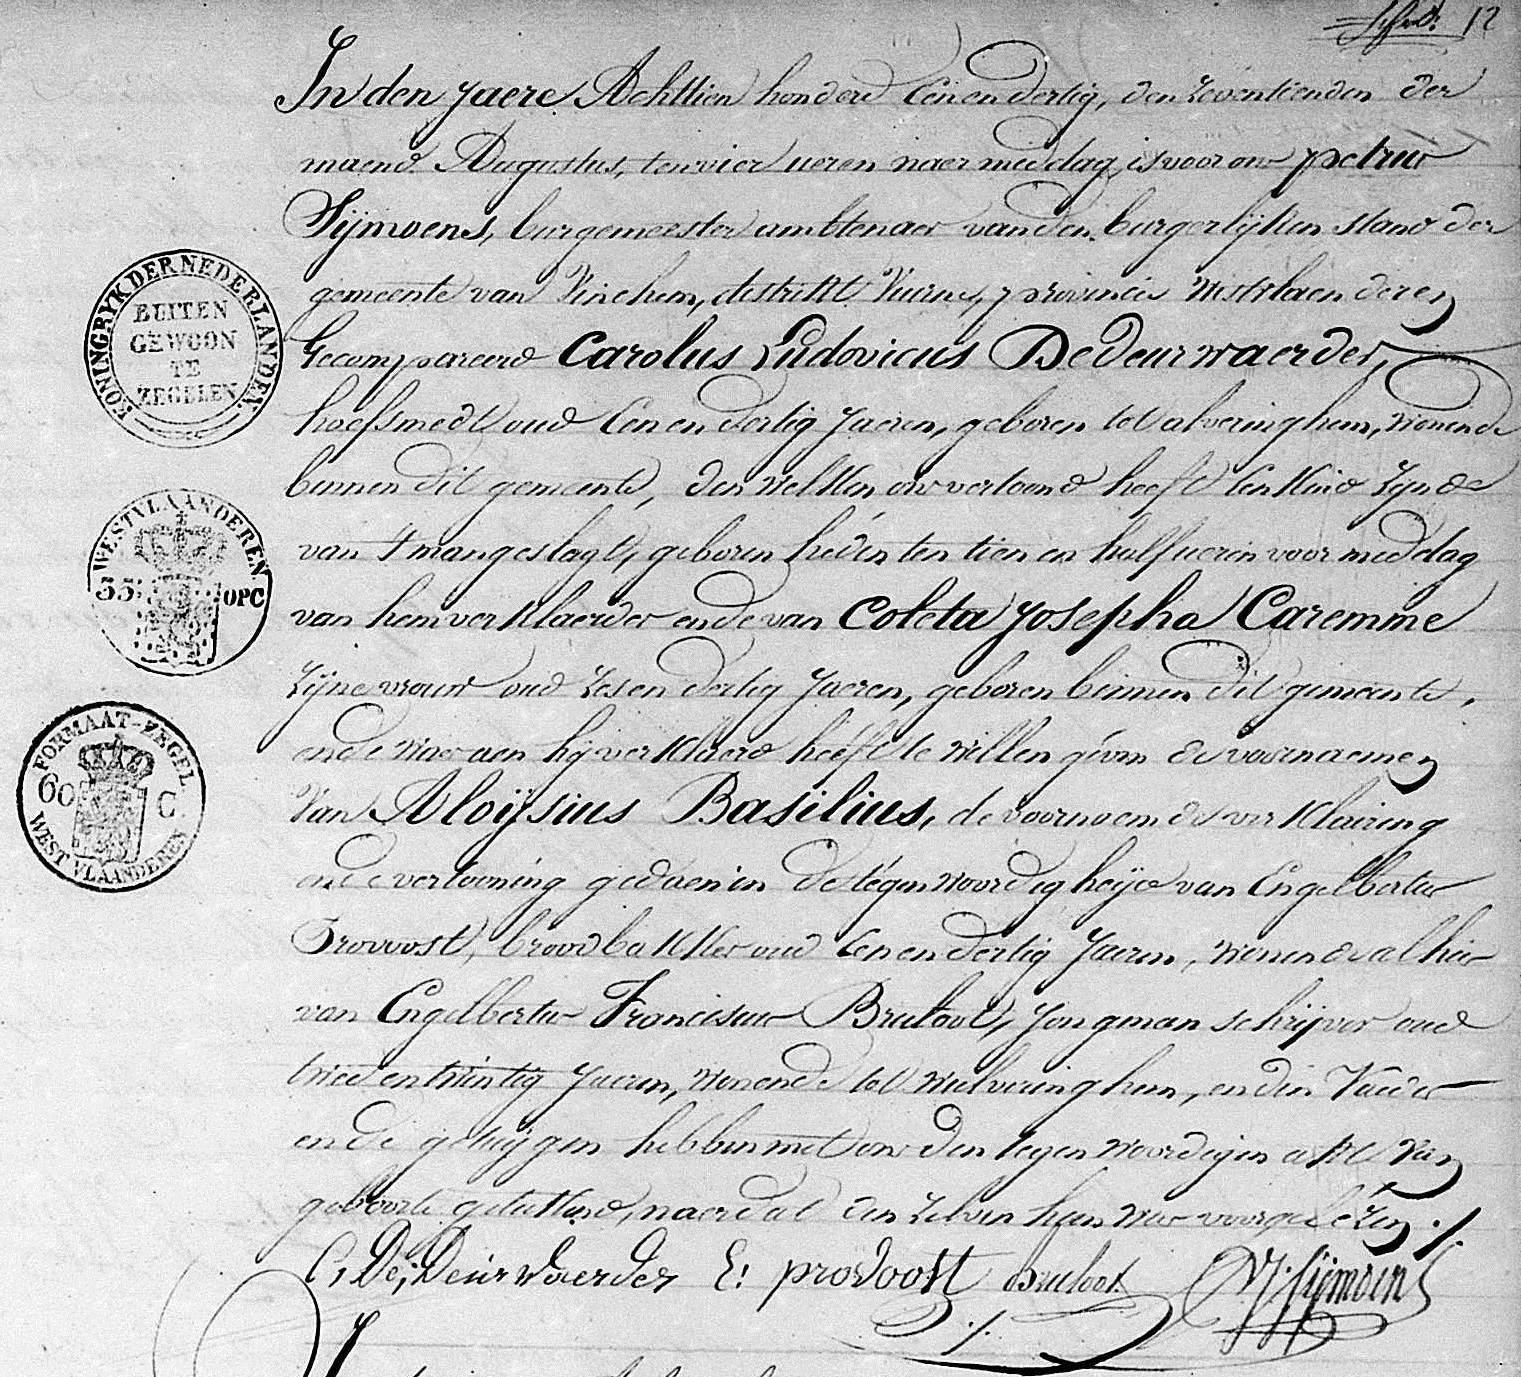 12
In den jaere Achttien honderd Een en dertig, den zeventienden der
maend Augustus, ten vier ueren naer middag, is voor ons petrus
Sijmoens, burgemeester ambtenaer van den burgerlijken stand der
gemeente van Vinchem, distrikt Vuerne, provincie Westvlaenderen
Gecompareerd Carolus Ludovicus Dedeurwaerder,
hoefsmedt oud Een en dertig Jaeren, geboren tot alveringhem, wonende
binnen dit gemeente, den welken ons vertoond heeft een kind zynde
van 't mangeslagt, geboren heden ten tien en half ueren voor middag
van hem verklaerder ende van Coleta Josepha Caremme
zijne vrouw oud zes en dertig Jaeren, geboren binnen dit gemeente,
ende waer aen hy verklaerd heeft te willen geven de voornaemen
Van Aloijsius Basilius, de voornoemde verklaering
ende vertooning gedaen in de tégenwoordigheijd van Engelbertus
Provoost, broodbakker oud Een en dertig Jaeren, wonende alhier
van Engelbertus Franciscus Bruloot, jongman schrijver oud
twee en twintig Jaeren, wonende tot wulveringhem, en den Vader
ende getuijgen hebben met ons den tegenwoordigen akt van
geboorte geteekend, naer dat den zelven hun was voorgelézen ./.
C, De, Deurwaerder E: provoost Bruloot. P, Sijmoens
./.
KONINGRYK DER NEDERLANDEN.
BUITEN
GEWOON
TE
ZEGELEN
WESTVLAANDEREN.
55: OPC
FORMAAT-ZEGEL
60 C
WEST VLAANDEREN